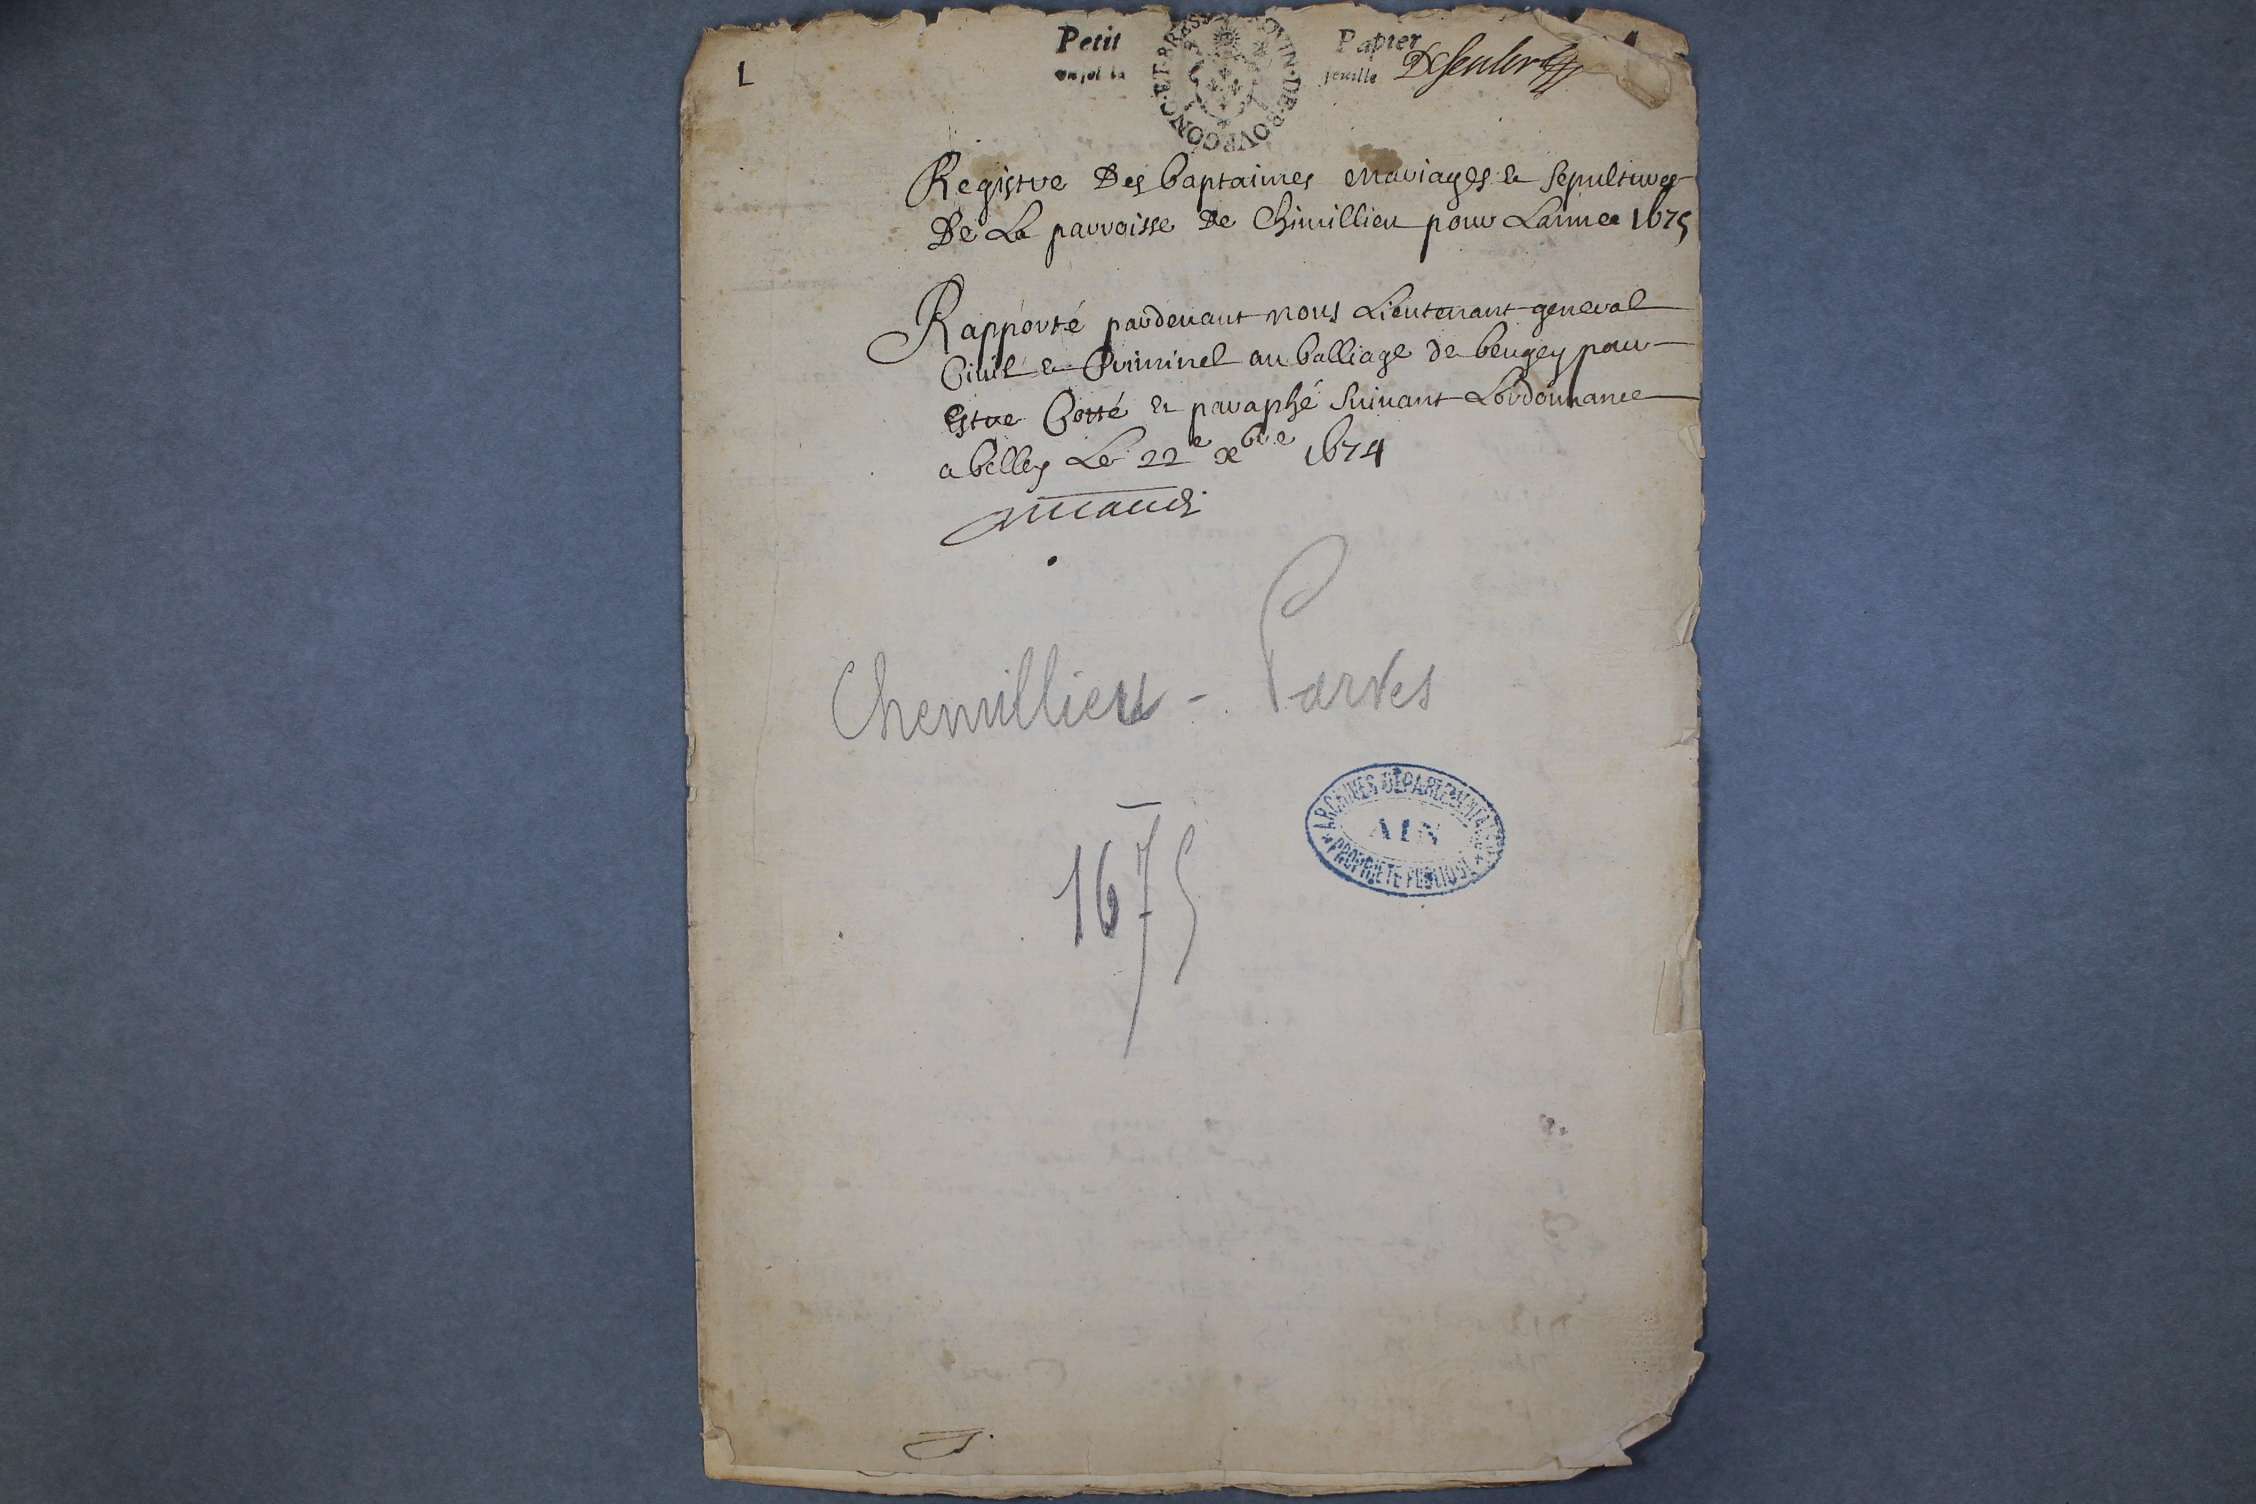 Petit Papier
un sol la feuille
1
Registre Des baptaimes mariages & sepultures
De La parroisse de Chimillieu pour Lannee 1675
Rapporté pardeuant nous Lieutenant general
Ciuil & Criminel au balliage de beugey pour
Estre Cotté & paraphé suiuant Lordonnance
a belley Le 22e xbre 1674
Chemillieu - Parves
1675
ARCHIVES DÉPARTEMENTALES
AIN
PROPRIÉTÉ PUBLIQUE